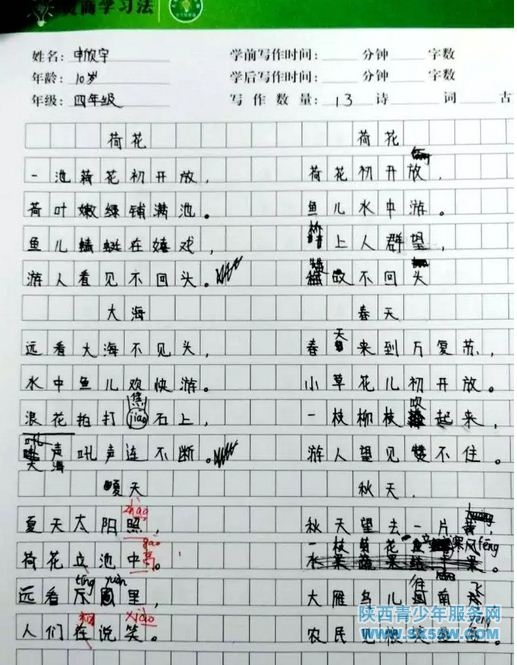 商学习法
姓名: 申欣宇 学前写作时间: 分钟 字数
年龄: 10岁 学后写作时间: 分钟 字数
年级: 四年级 写作数量: 13 诗 词 古
荷花
一池荷花初开放,
荷叶嫩绿铺满池。
鱼儿蜻蜓在嬉戏,
游人看见不回头。
大海
远看大海不见头,
水中鱼儿欢快游。
浪花拍打焦(jiāo)石上,
声吼声连不断。
夏天
夏天太阳照,
zhào
荷花立池中
gāo 高。
tíng yuán
远看 里,
人们在说笑。
xiào
荷花
荷花初开放,
鱼儿水中游。
桥上人群望,
不回头
春天
春天来到万复苏,
小草花儿初开放。
一枝柳枝吹起来,
游人望见赞不住。
秋天
秋天望去一片黄,
一枝 花 果 fēng
大雁鸟儿往南飞
农民
陕西青少年服务网
www.sx58w.com